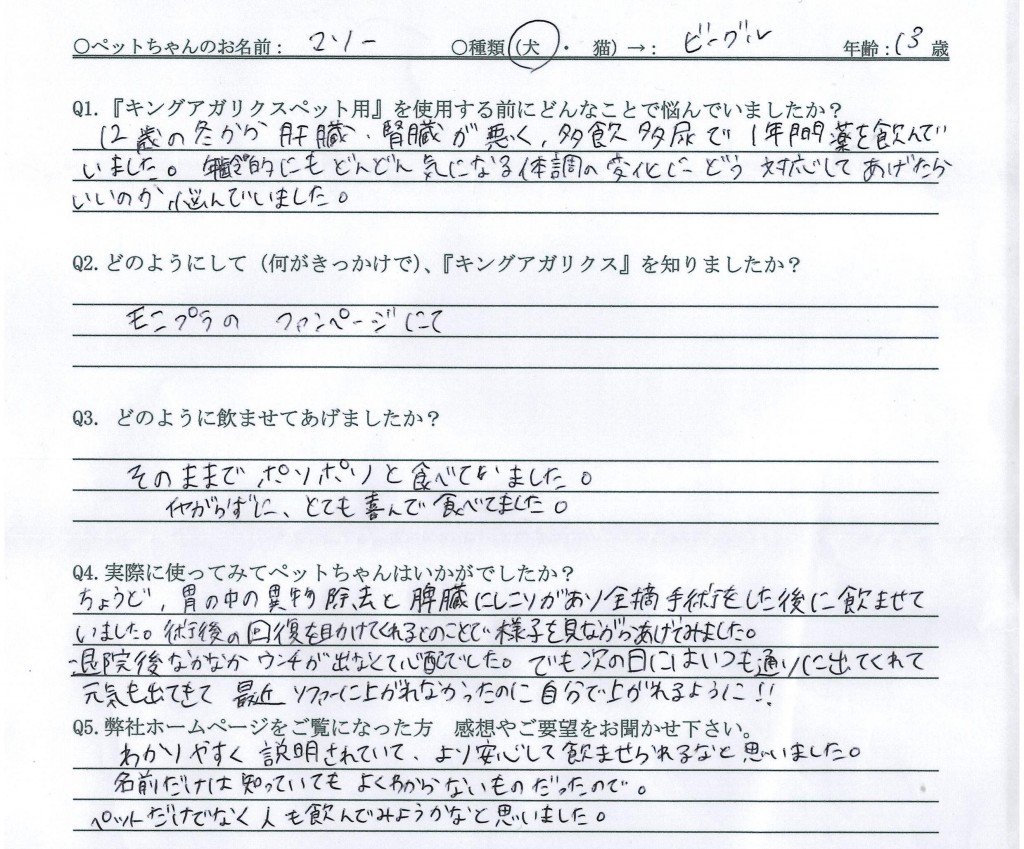 ○ペットちゃんのお名前： マリー ○種類（犬 ・ 猫）→： ビーグル 年齢：13歳
Q1.『キングアガリクスペット用』を使用する前にどんなことで悩んでいましたか？
12歳の冬から 肝臓、腎臓が悪く、多飲多尿で 1年間薬を飲んで
いました。年齢的にもどんどん気になる体調の変化に どう対応してあげたら
いいのか 悩んでいました。
Q2.どのようにして（何がきっかけで）、『キングアガリクス』を知りましたか？
モニプラの ファンページにて
Q3. どのように飲ませてあげましたか？
そのままで ポリポリと食べていました。
イヤがらずに、とても喜んで食べてました。
Q4.実際に使ってみてペットちゃんはいかがでしたか？
ちょうど、胃の中の異物除去と脾臓にしこりがあり全摘手術をした後に飲ませて
いました。術後の回復を助けてくれるとのことで様子を見ながらあげてみました。
退院後なかなかウンチが出なくて心配でした。でも次の日にはいつも通りに出てくれて
元気も出てきて 最近 ソファーに上がれなかったのに自分で上がれるように!!
Q5.弊社ホームページをご覧になった方 感想やご要望をお聞かせ下さい。
わかりやすく 説明されていて、より安心して飲ませられるなと思いました。
名前だけは知っていても よくわからないものだったので。
ペットだけでなく人も飲んでみようかなと思いました。